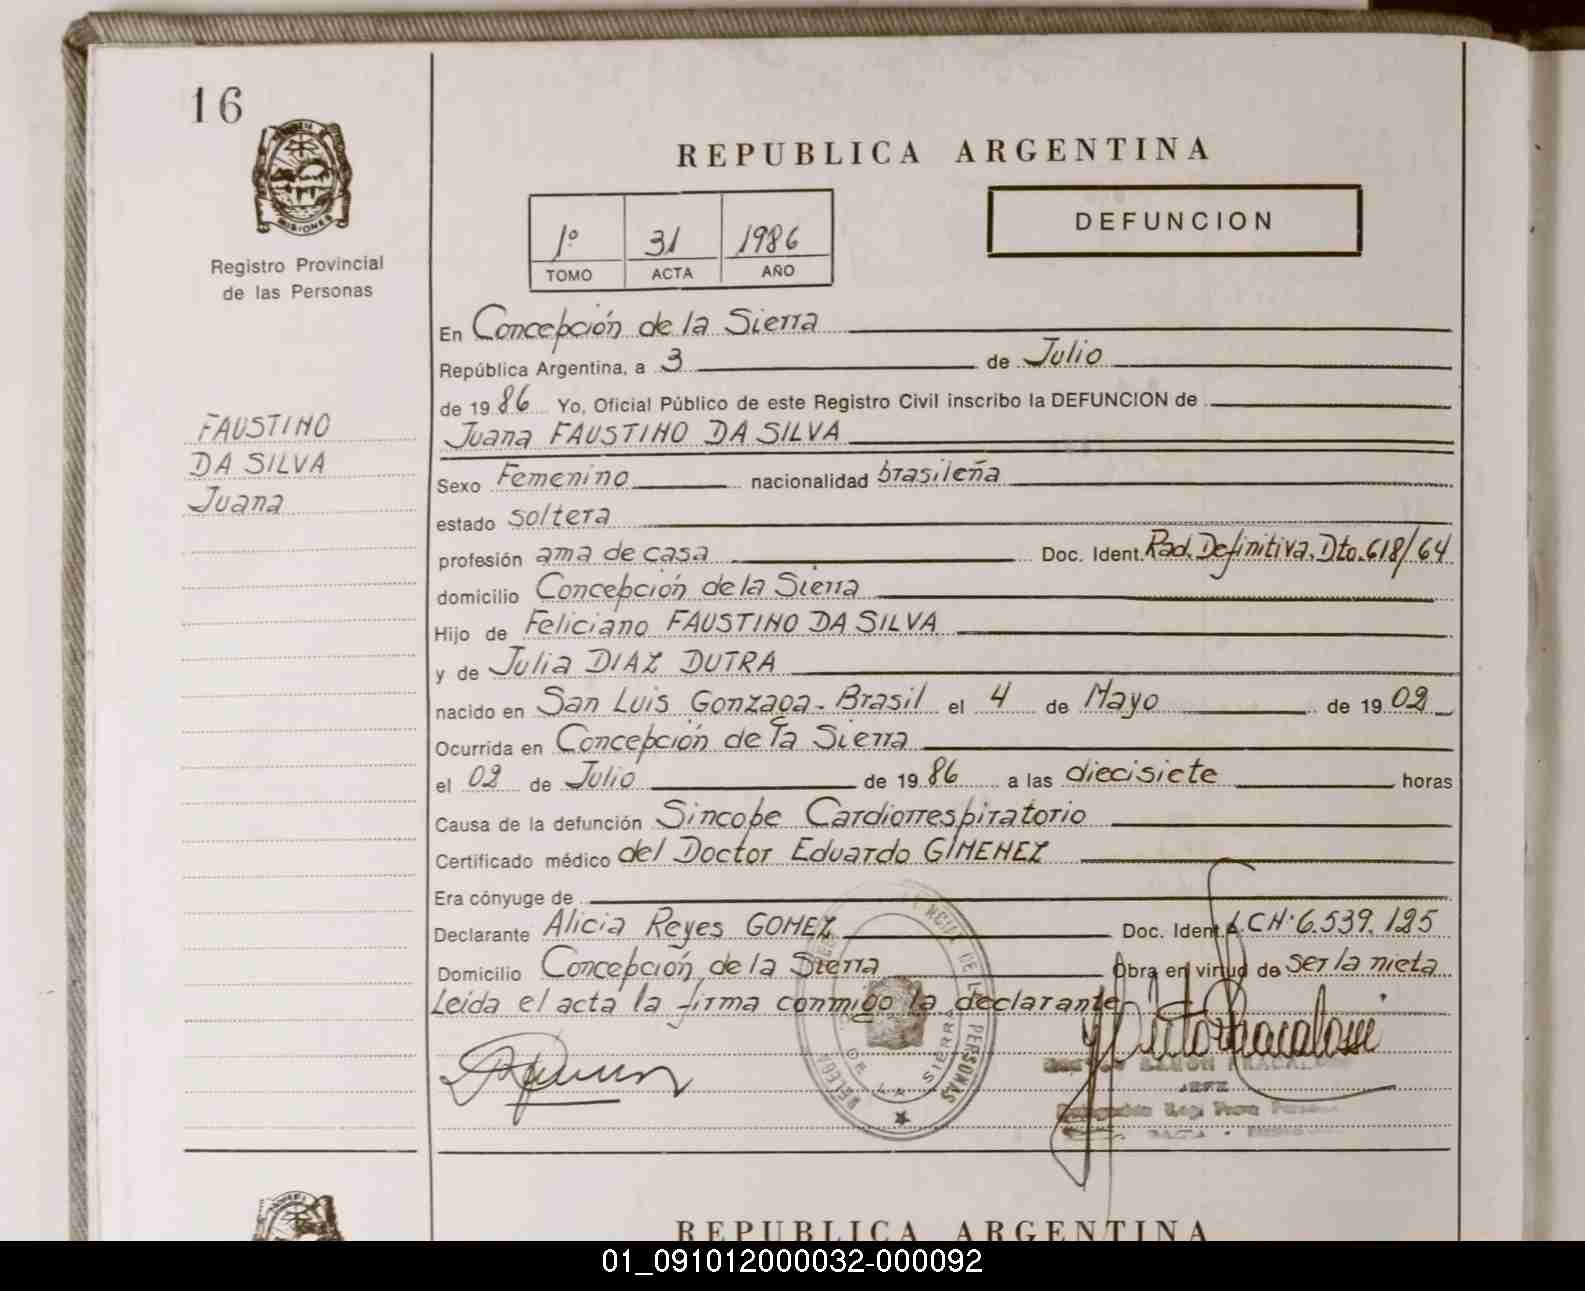 16
MISIONES
Registro Provincial
de las Personas
REPUBLICA ARGENTINA
1º 31 1986
TOMO ACTA AÑO
DEFUNCION
FAUSTINO
DA SILVA
Juana
En Concepción de la Sierra
República Argentina, a 3 de Julio
de 1986 Yo, Oficial Público de este Registro Civil inscribo la DEFUNCION de
Juana FAUSTINO DA SILVA
Sexo Femenino nacionalidad brasileña
estado soltera
profesión ama de casa Doc. Ident. Rad. Definitiva. Dto. 618/64
domicilio Concepción de la Sierra
Hijo de Feliciano FAUSTINO DA SILVA
y de Julia DIAZ DUTRA
nacido en San Luis Gonzaga - Brasil el 4 de Mayo de 1902
Ocurrida en Concepción de la Sierra
el 02 de Julio de 1986 a las diecisiete horas
Causa de la defunción Sincope Cardiorrespiratorio
Certificado médico del Doctor Eduardo GIMENEZ
Era cónyuge de
Declarante Alicia Reyes GOMEZ Doc. Ident. LCNº 6.539.125
Domicilio Concepción de la Sierra Obra en virtud de ser la nieta
Leída el acta la firma conmigo la declarante
DE LA SIERRA
PERSONAS
REPUBLICA ARGENTINA
01_091012000032-000092